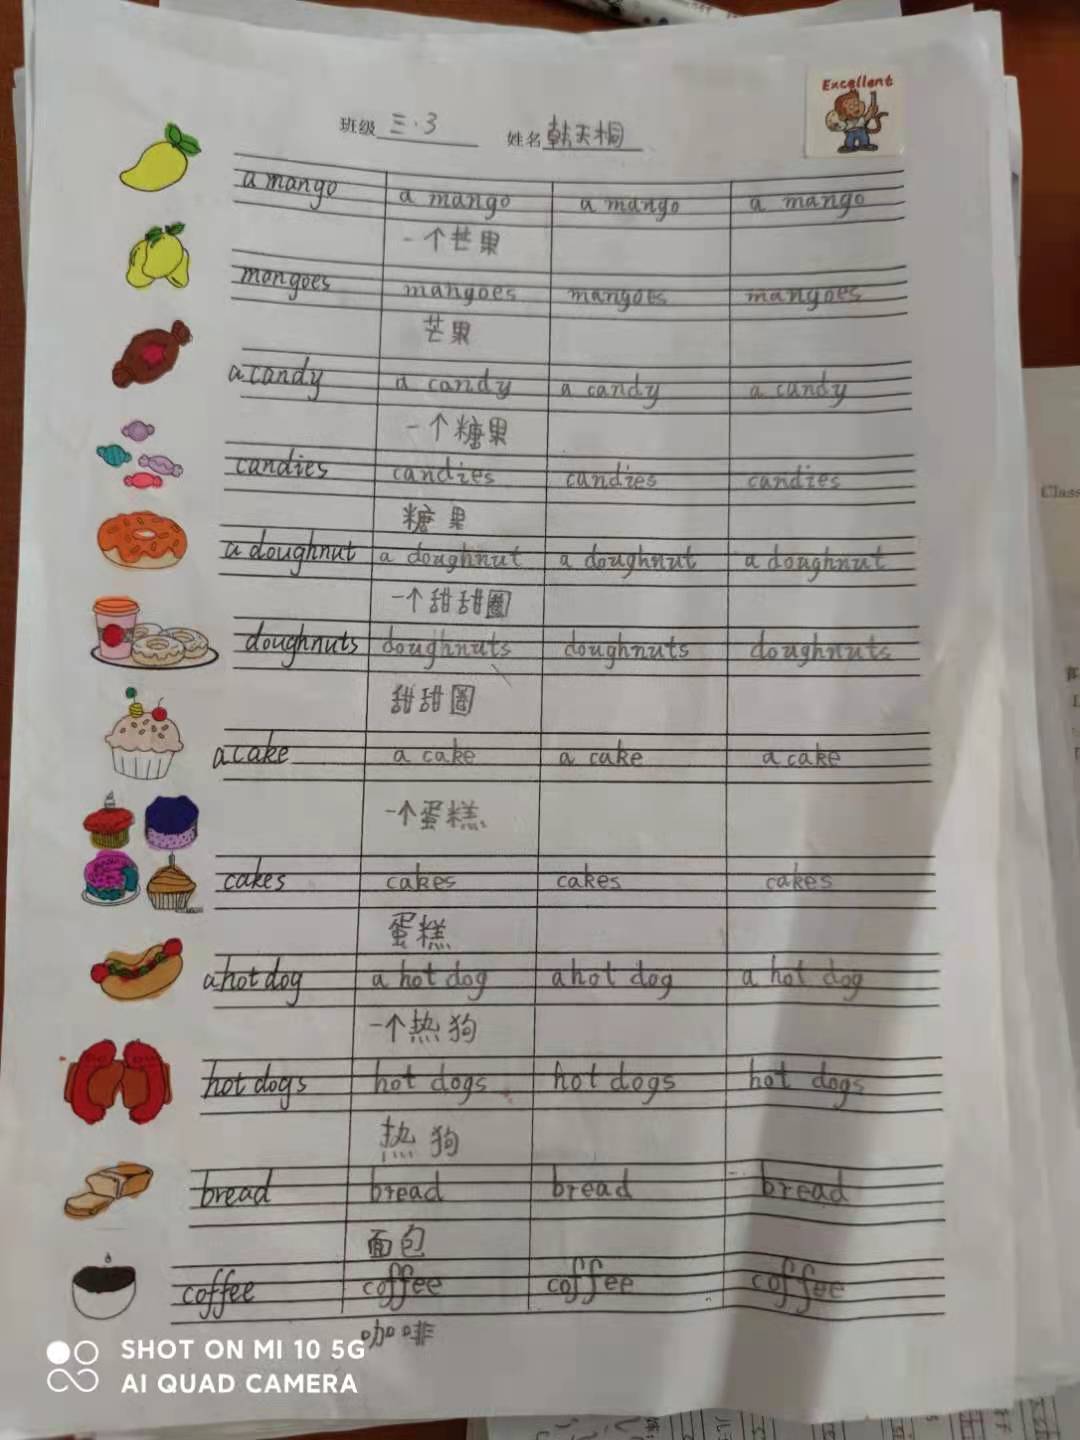 Excellent
班级 三.3 姓名 韩天桐
a mango a mango a mango a mango
一个芒果
mangoes mangoes mangoes mangoes
芒果
a candy a candy a candy a candy
一个糖果
candies candies candies candies
糖果
a doughnut a doughnut a doughnut a doughnut
一个甜甜圈
doughnuts doughnuts doughnuts doughnuts
甜甜圈
a cake a cake a cake a cake
一个蛋糕
cakes cakes cakes cakes
蛋糕
a hot dog a hot dog a hot dog a hot dog
一个热狗
hot dogs hot dogs hot dogs hot dogs
热狗
bread bread bread bread
面包
coffee coffee coffee coffee
咖啡
SHOT ON MI 10 5G
AI QUAD CAMERA
Class